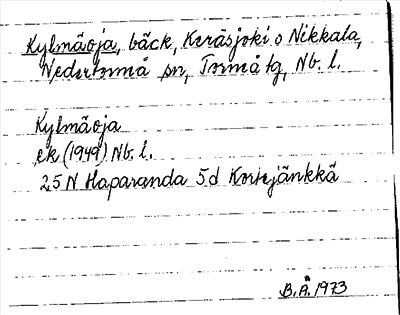 Kylmäoja, bäck, Keräsjoki o Nikkala,
Nedertorneå sn, Torneå tg, Nb. l.
Kylmäoja
ek (1949) Nb. l.
25 N Haparanda 5d Korkejänkkä
B.Å. 1973